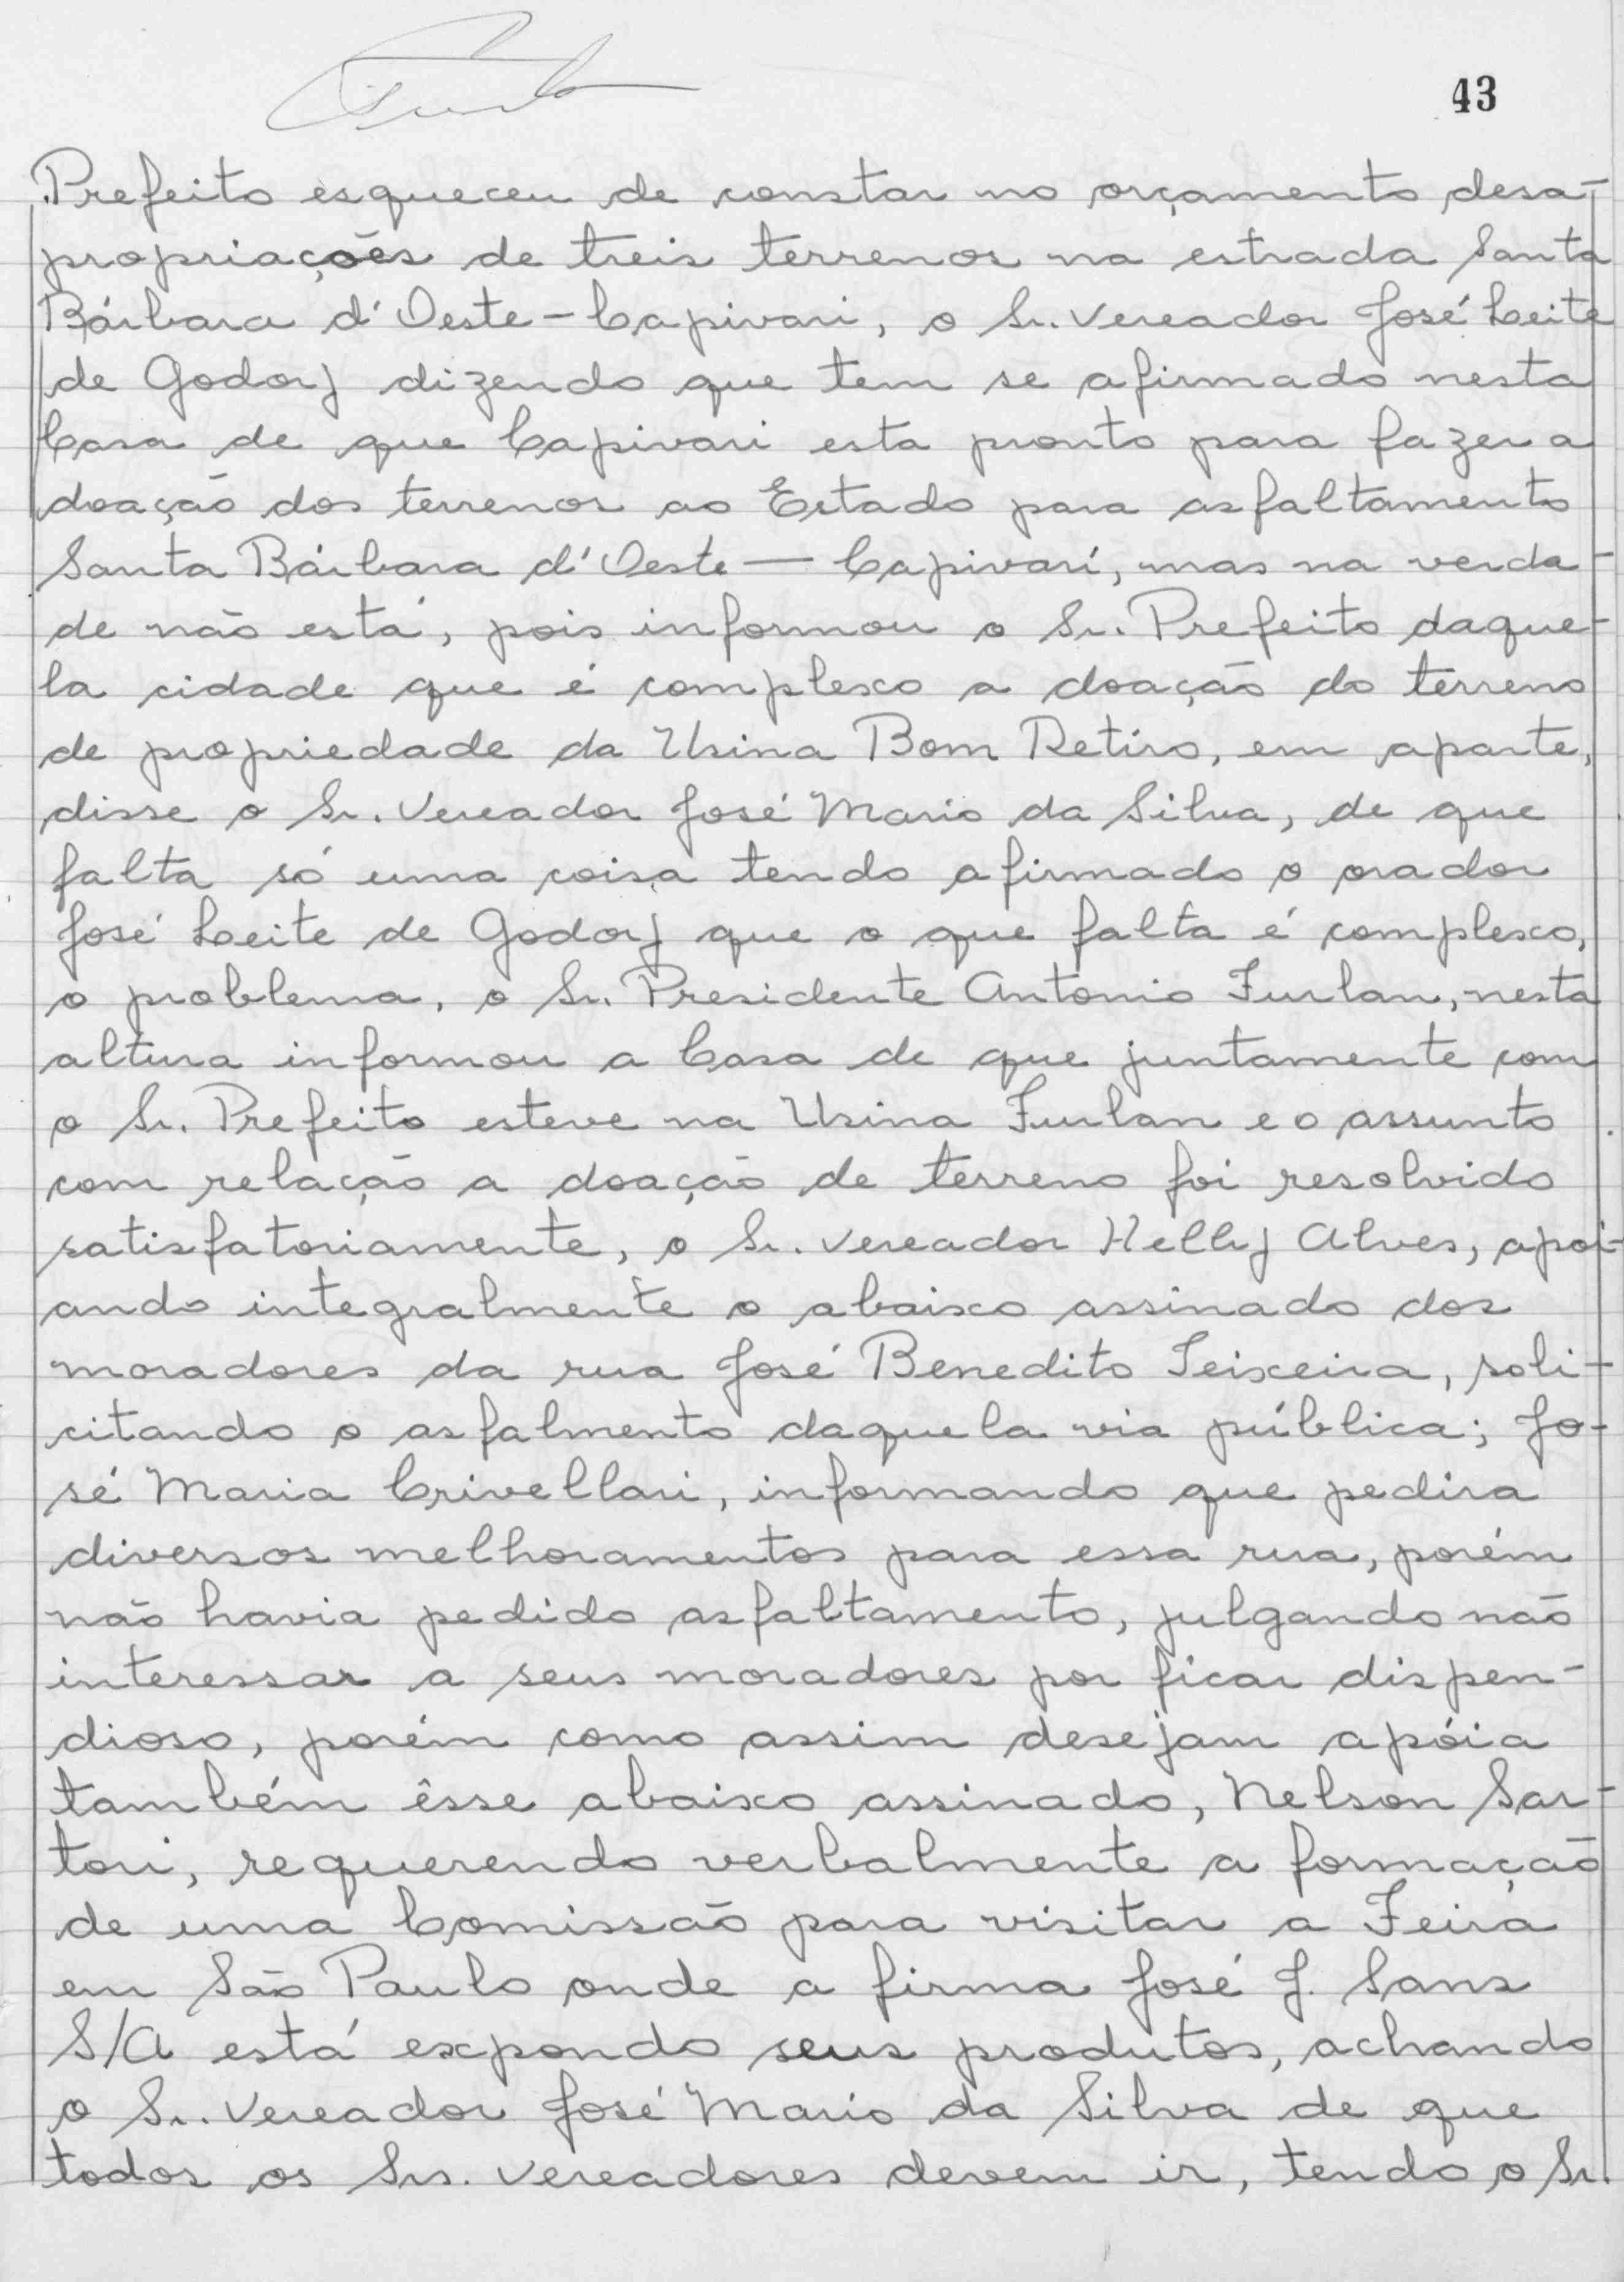 43
Prefeito esqueceu de constar no orçamento desa-
propriações de treis terrenos na estrada Santa
Bárbara d'Oeste - Capivari, o Sr. Vereador José Leite
de Godoy dizendo que tem se afirmado nesta
Casa de que Capivari esta pronto para fazer a
doação dos terrenos ao Estado para asfaltamento
Santa Bárbara d'Oeste — Capivari, mas na verda-
de não está, pois informou o Sr. Prefeito daque-
la cidade que é complexo a doação do terreno
de propriedade da Usina Bom Retiro, em aparte,
disse o Sr. Vereador José Mario da Silva, de que
falta só uma coisa tendo afirmado o orador
José Leite de Godoy que o que falta é complexo,
o problema, o Sr. Presidente Antonio Furlan, nesta
altura informou a Casa de que juntamente com
o Sr. Prefeito esteve na Usina Furlan e o assunto
com relação a doação de terreno foi resolvido
satisfatoriamente, o Sr. Vereador Helly Alves, apoi-
ando integralmente o abaixo assinado dos
moradores da rua José Benedito Teixeira, soli-
citando o asfalmento daquela via pública; Jo-
sé Maria Crivellari, informando que pedira
diversos melhoramentos para essa rua, porém
não havia pedido asfaltamento, julgando não
interessar a seus moradores por ficar dispen-
dioso, porém como assim desejam apóia
também êsse abaixo assinado, Nelson Sar-
tori, requerendo verbalmente a formação
de uma Comissão para visitar a Feira
em São Paulo onde a firma José J. Sans
S/A está expondo seus produtos, achando
o Sr. Vereador José Mario da Silva de que
todos os Srs. Vereadores devem ir, tendo o Sr.